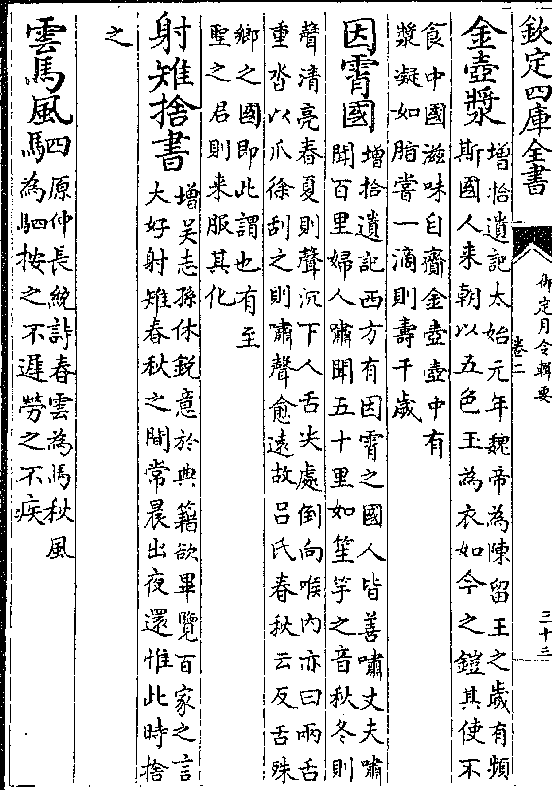 欽定四庫全書
御定月令輯要
卷二
三十三
金壺漿
增拾遺記太始元年魏帝為陳留王之歲有頻
斯國人来朝以五色玉為衣如今之鎧其使不
食中國滋味自齎金壺壺中有
漿凝如脂嘗一滴則壽千歲
因霄國
增拾遺記西方有因霄之國人皆善嘯丈夫嘯
聞百里婦人嘯聞五十里如笙竽之音秋冬則
聲清亮春夏則聲沉下人舌尖處倒向喉内亦曰兩舌
重沓以爪徐刮之則嘯聲愈遠故吕氏春秋云反舌殊
鄉之國即此謂也有至
聖之君則来服其化
射雉捨書
增吴志孫休鋭意於典籍欲畢覽百家之言
大好射雉春秋之間常晨出夜還惟此時捨
之
雲馬風駟
原仲長統詩春雲為馬秋風
為駟按之不遲勞之不疾